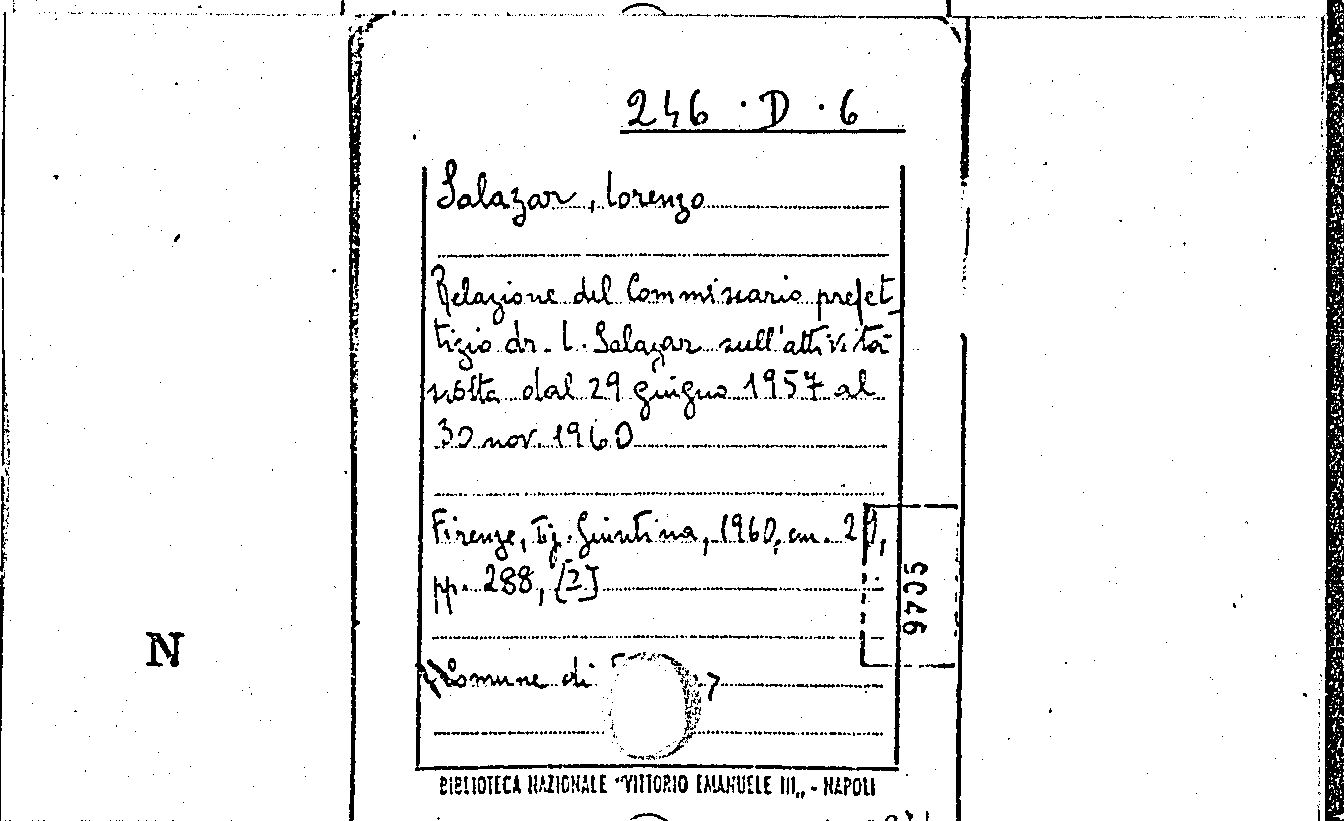 246 · D · 6
Salazar, Lorenzo
Relazione del Commissario prefet
tizio dr. L. Salazar sull'attività
svolta dal 29 giugno 1957 al
30 nov. 1960
Firenze, Tip. Giuntina, 1960, cm. 29,
pp. 288, [2]
9705
N
Comune di
BIBLIOTECA NAZIONALE "VITTORIO EMANUELE III„ - NAPOLI